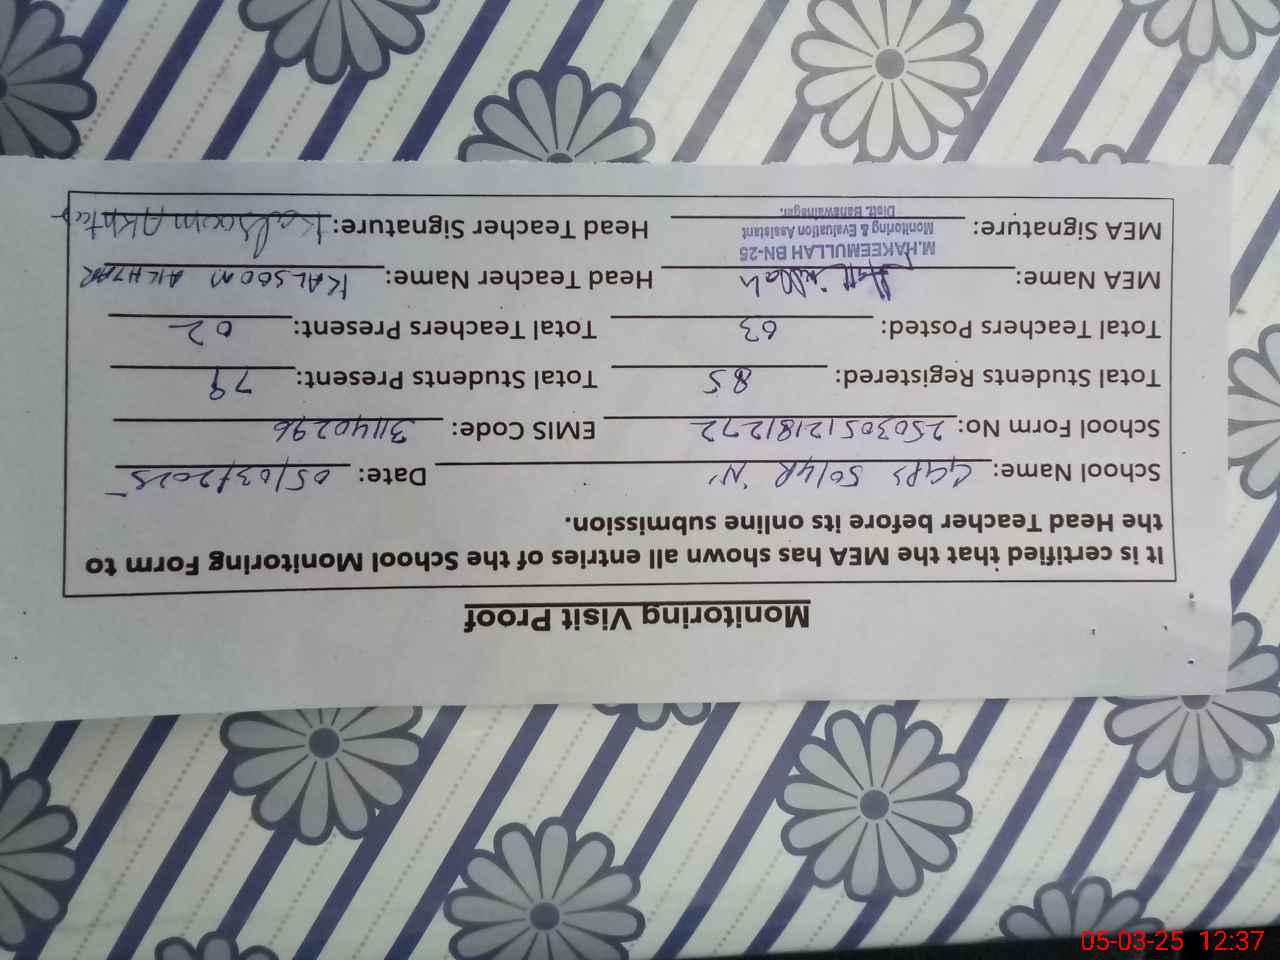 Monitoring Visit Proof
It is certified that the MEA has shown all entries of the School Monitoring Form to
the Head Teacher before its online submission.
School Name: GGPS 50/4R 'N' Date: 05/03/2025
School Form No: 25030512181272 EMIS Code: 31140296
Total Students Registered: 85 Total Students Present: 79
Total Teachers Posted: 03 Total Teachers Present: 02
MEA Name: Head Teacher Name: KALSOOM AKHTAR
M.HAKEEMULLAH BN-25
Monitoring & Evaluation Assistant
Distt. Bahawalnagar.
MEA Signature: Head Teacher Signature: Kalsoom Akhtar
05-03-25 12:37